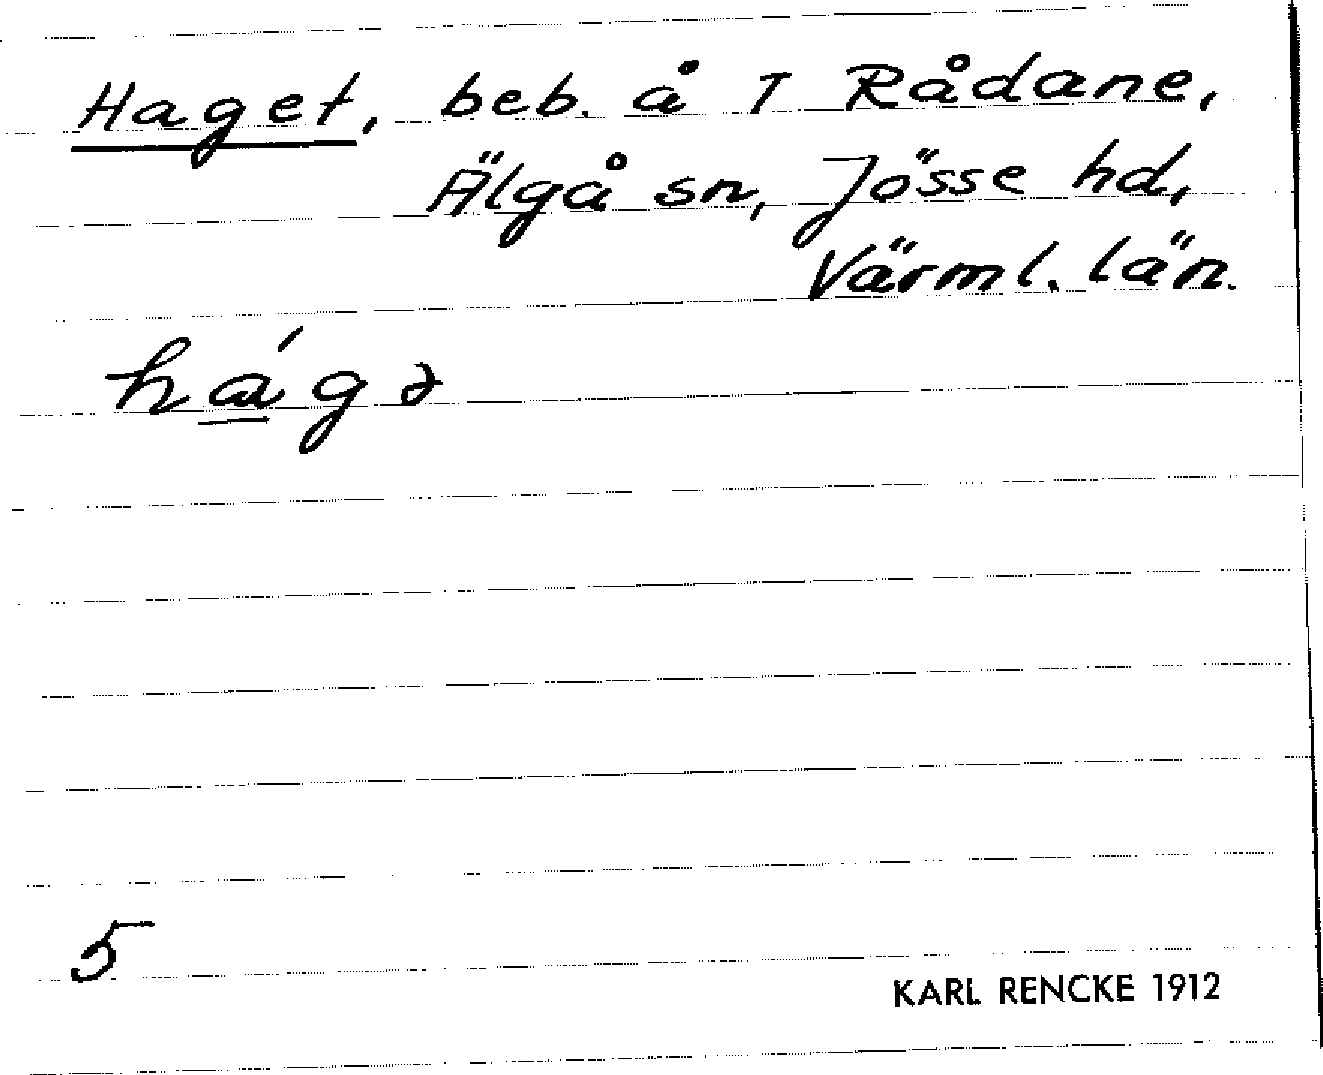 Haget, beb. å T Rådane,
Älgå sn, Jösse hd,
Värml. län.
há̱gə
5
KARL RENCKE 1912